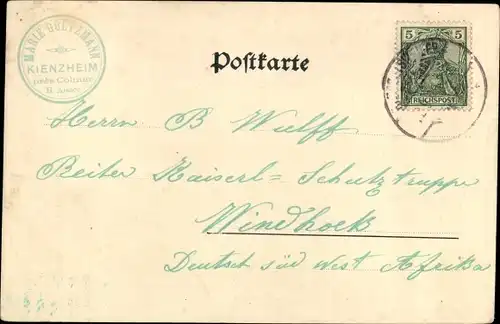 MARIE HOLTZMANN
KIENZHEIM
près Colmar
H. Alsace
Postkarte
5 5
REICHSPOST
Herrn B Wulff
Reiter Kaiserl= Schutztruppe
Windhoek
Deutsch süd West Afrika